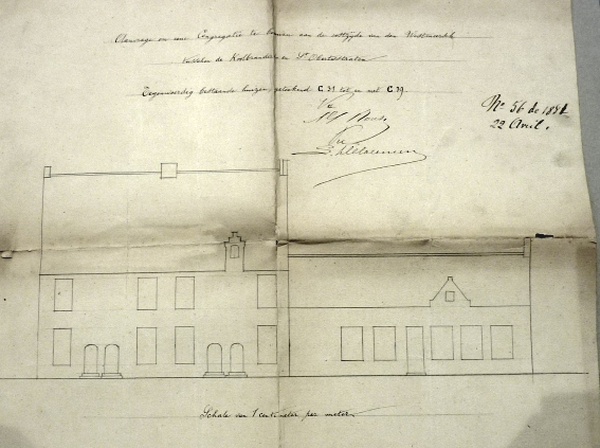 Aanvrage om eene Congregatie te bouwen aan de oostzyde van den Westmarkt
tusschen de Koolbranders en St Obertusstraten
Tegenwoordig bestaande huizen, geteekend C. 31 tot en met C. 39.
No 56 de 1881
22 Avril.
Vu
Vu
Schale van 1 centimeter per meter